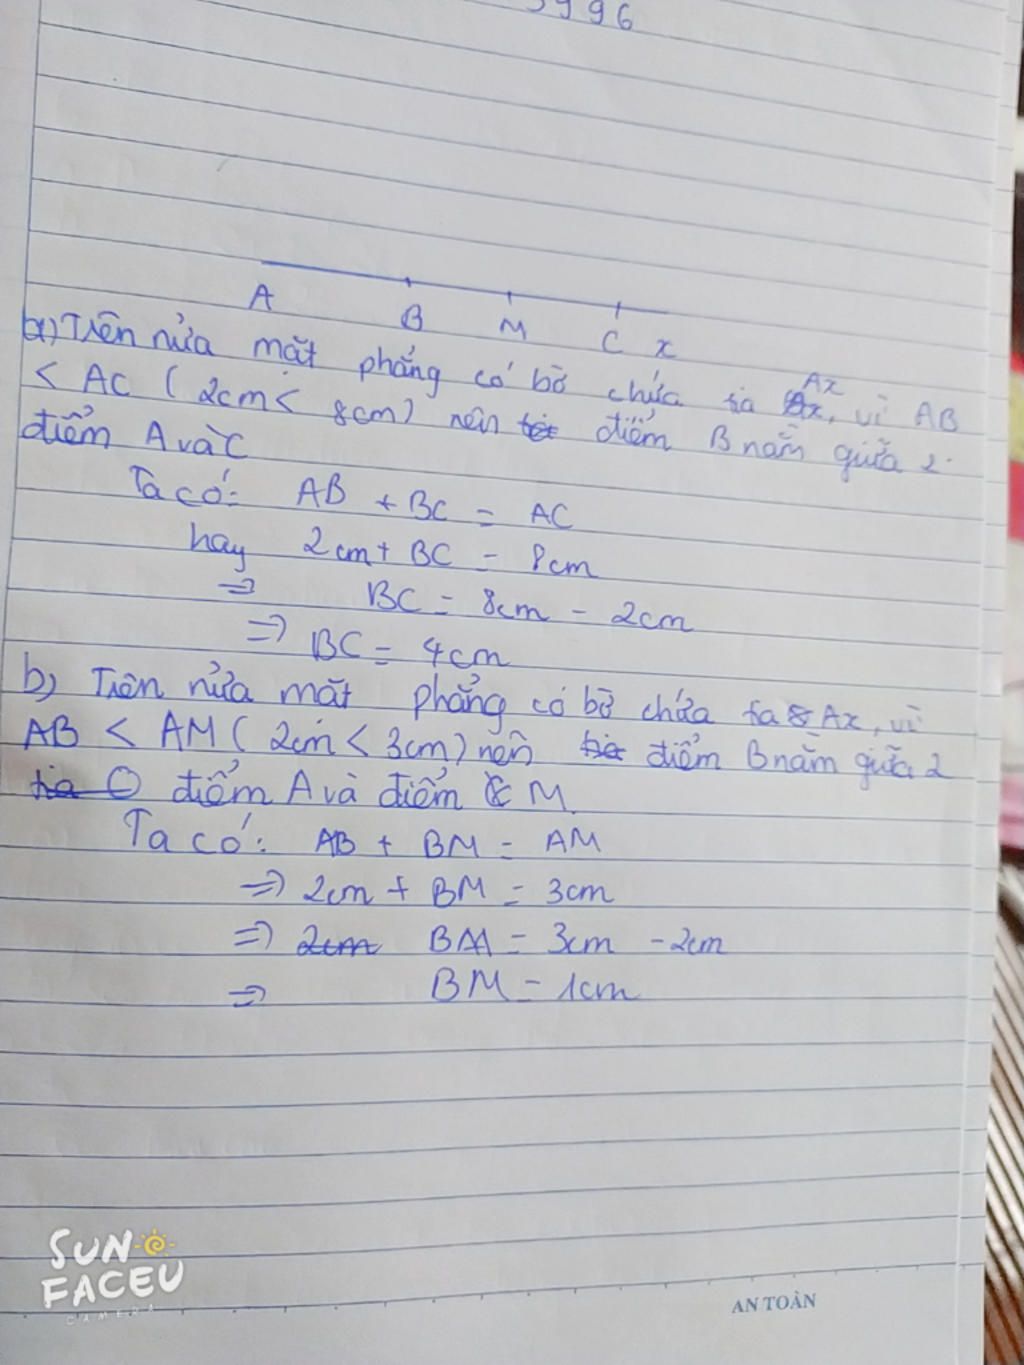 996
A B M C x
a) Trên nửa mặt phẳng có bờ chứa tia Ax, vì AB
< AC ( 2cm < 8cm) nên điểm B nằm giữa 2
điểm A và C
Ta có: AB + BC = AC
hay 2cm + BC = 8cm
=> BC = 8cm - 2cm
=> BC = 4cm
b) Trên nửa mặt phẳng có bờ chứa tia Ax, vì
AB < AM ( 2cm < 3cm) nên điểm B nằm giữa 2
điểm A và điểm M
Ta có: AB + BM = AM
=> 2cm + BM = 3cm
=> 2cm BM = 3cm - 2cm
=> BM = 1cm
SUN
FACEU
CAMERA
AN TOÀN